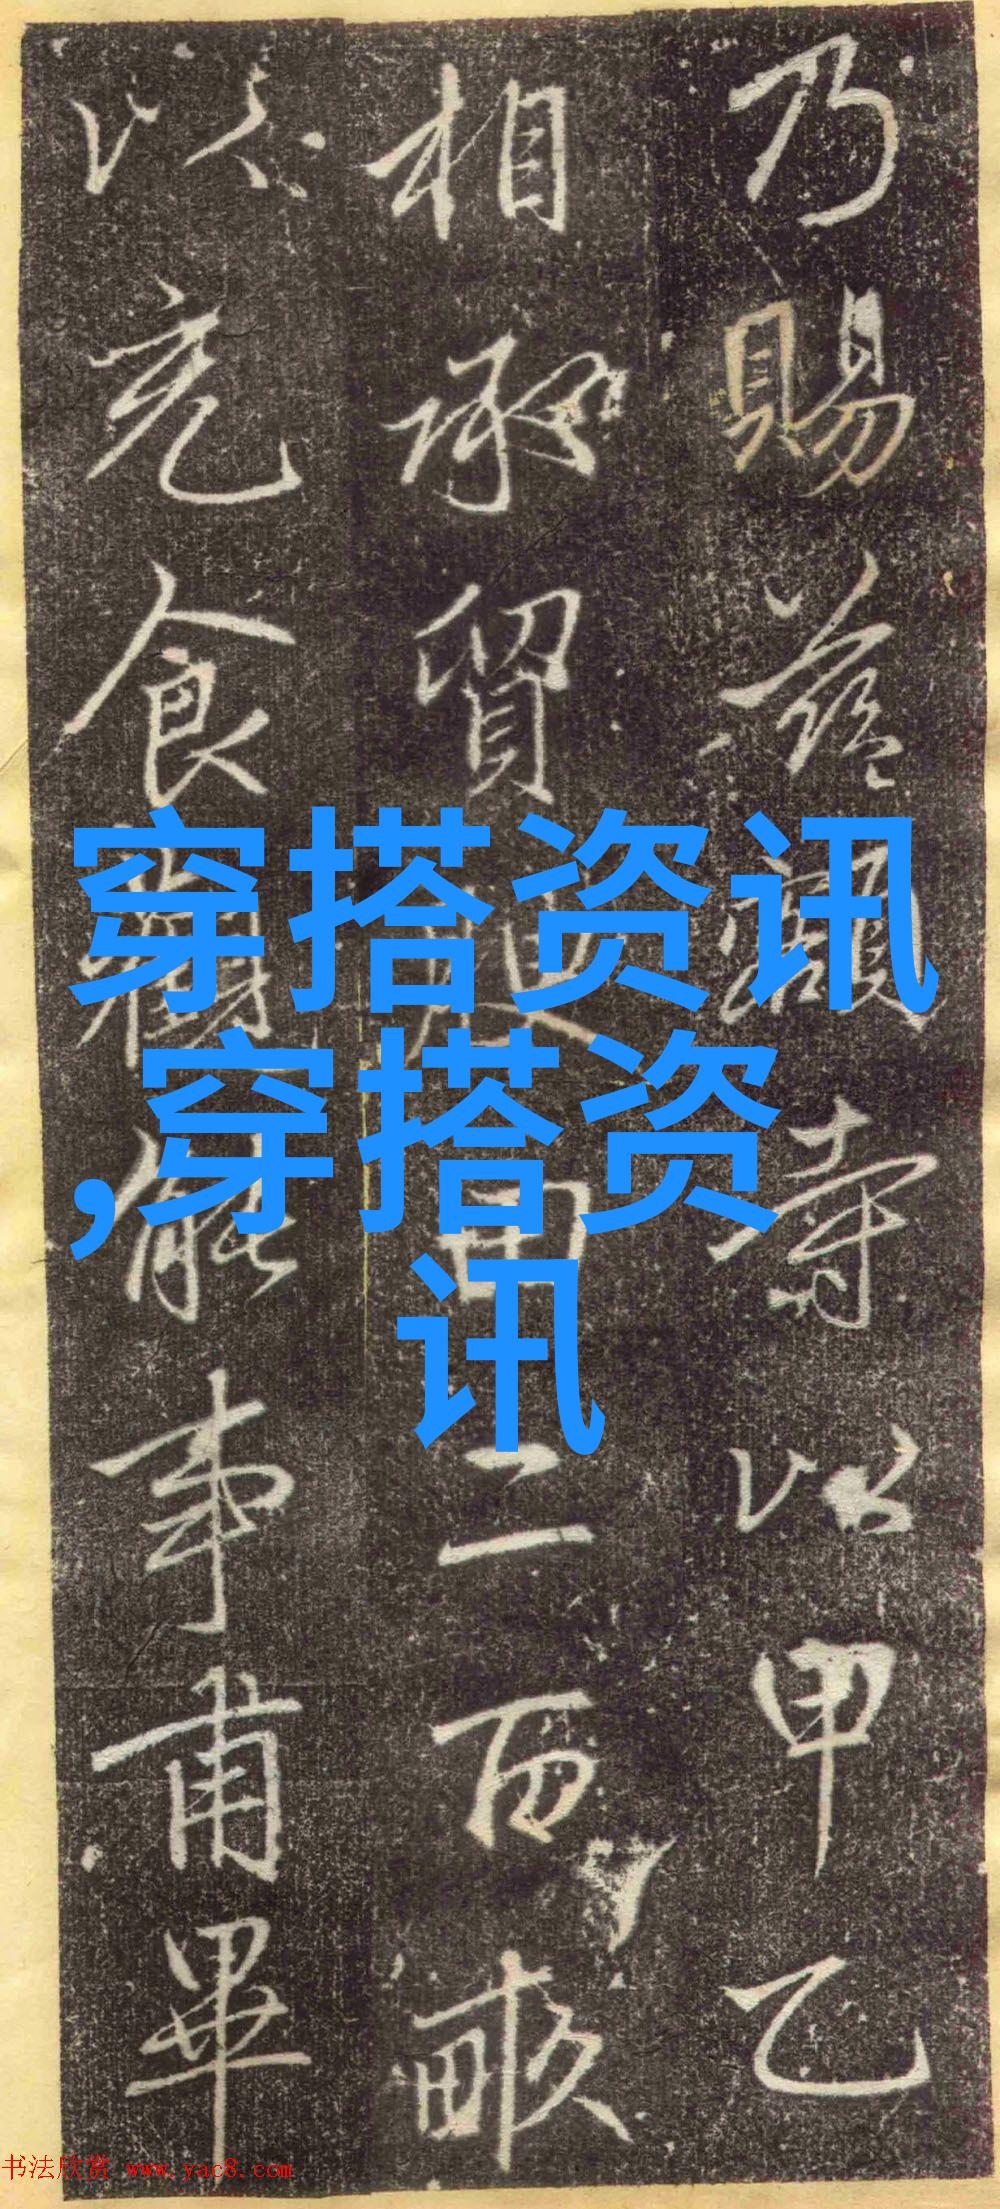 乃賜茲額寺以甲乙
相承貿田二百畝
以充食能事甫畢
穿搭资讯
,穿搭资
讯
书法欣赏 www.yac8.com